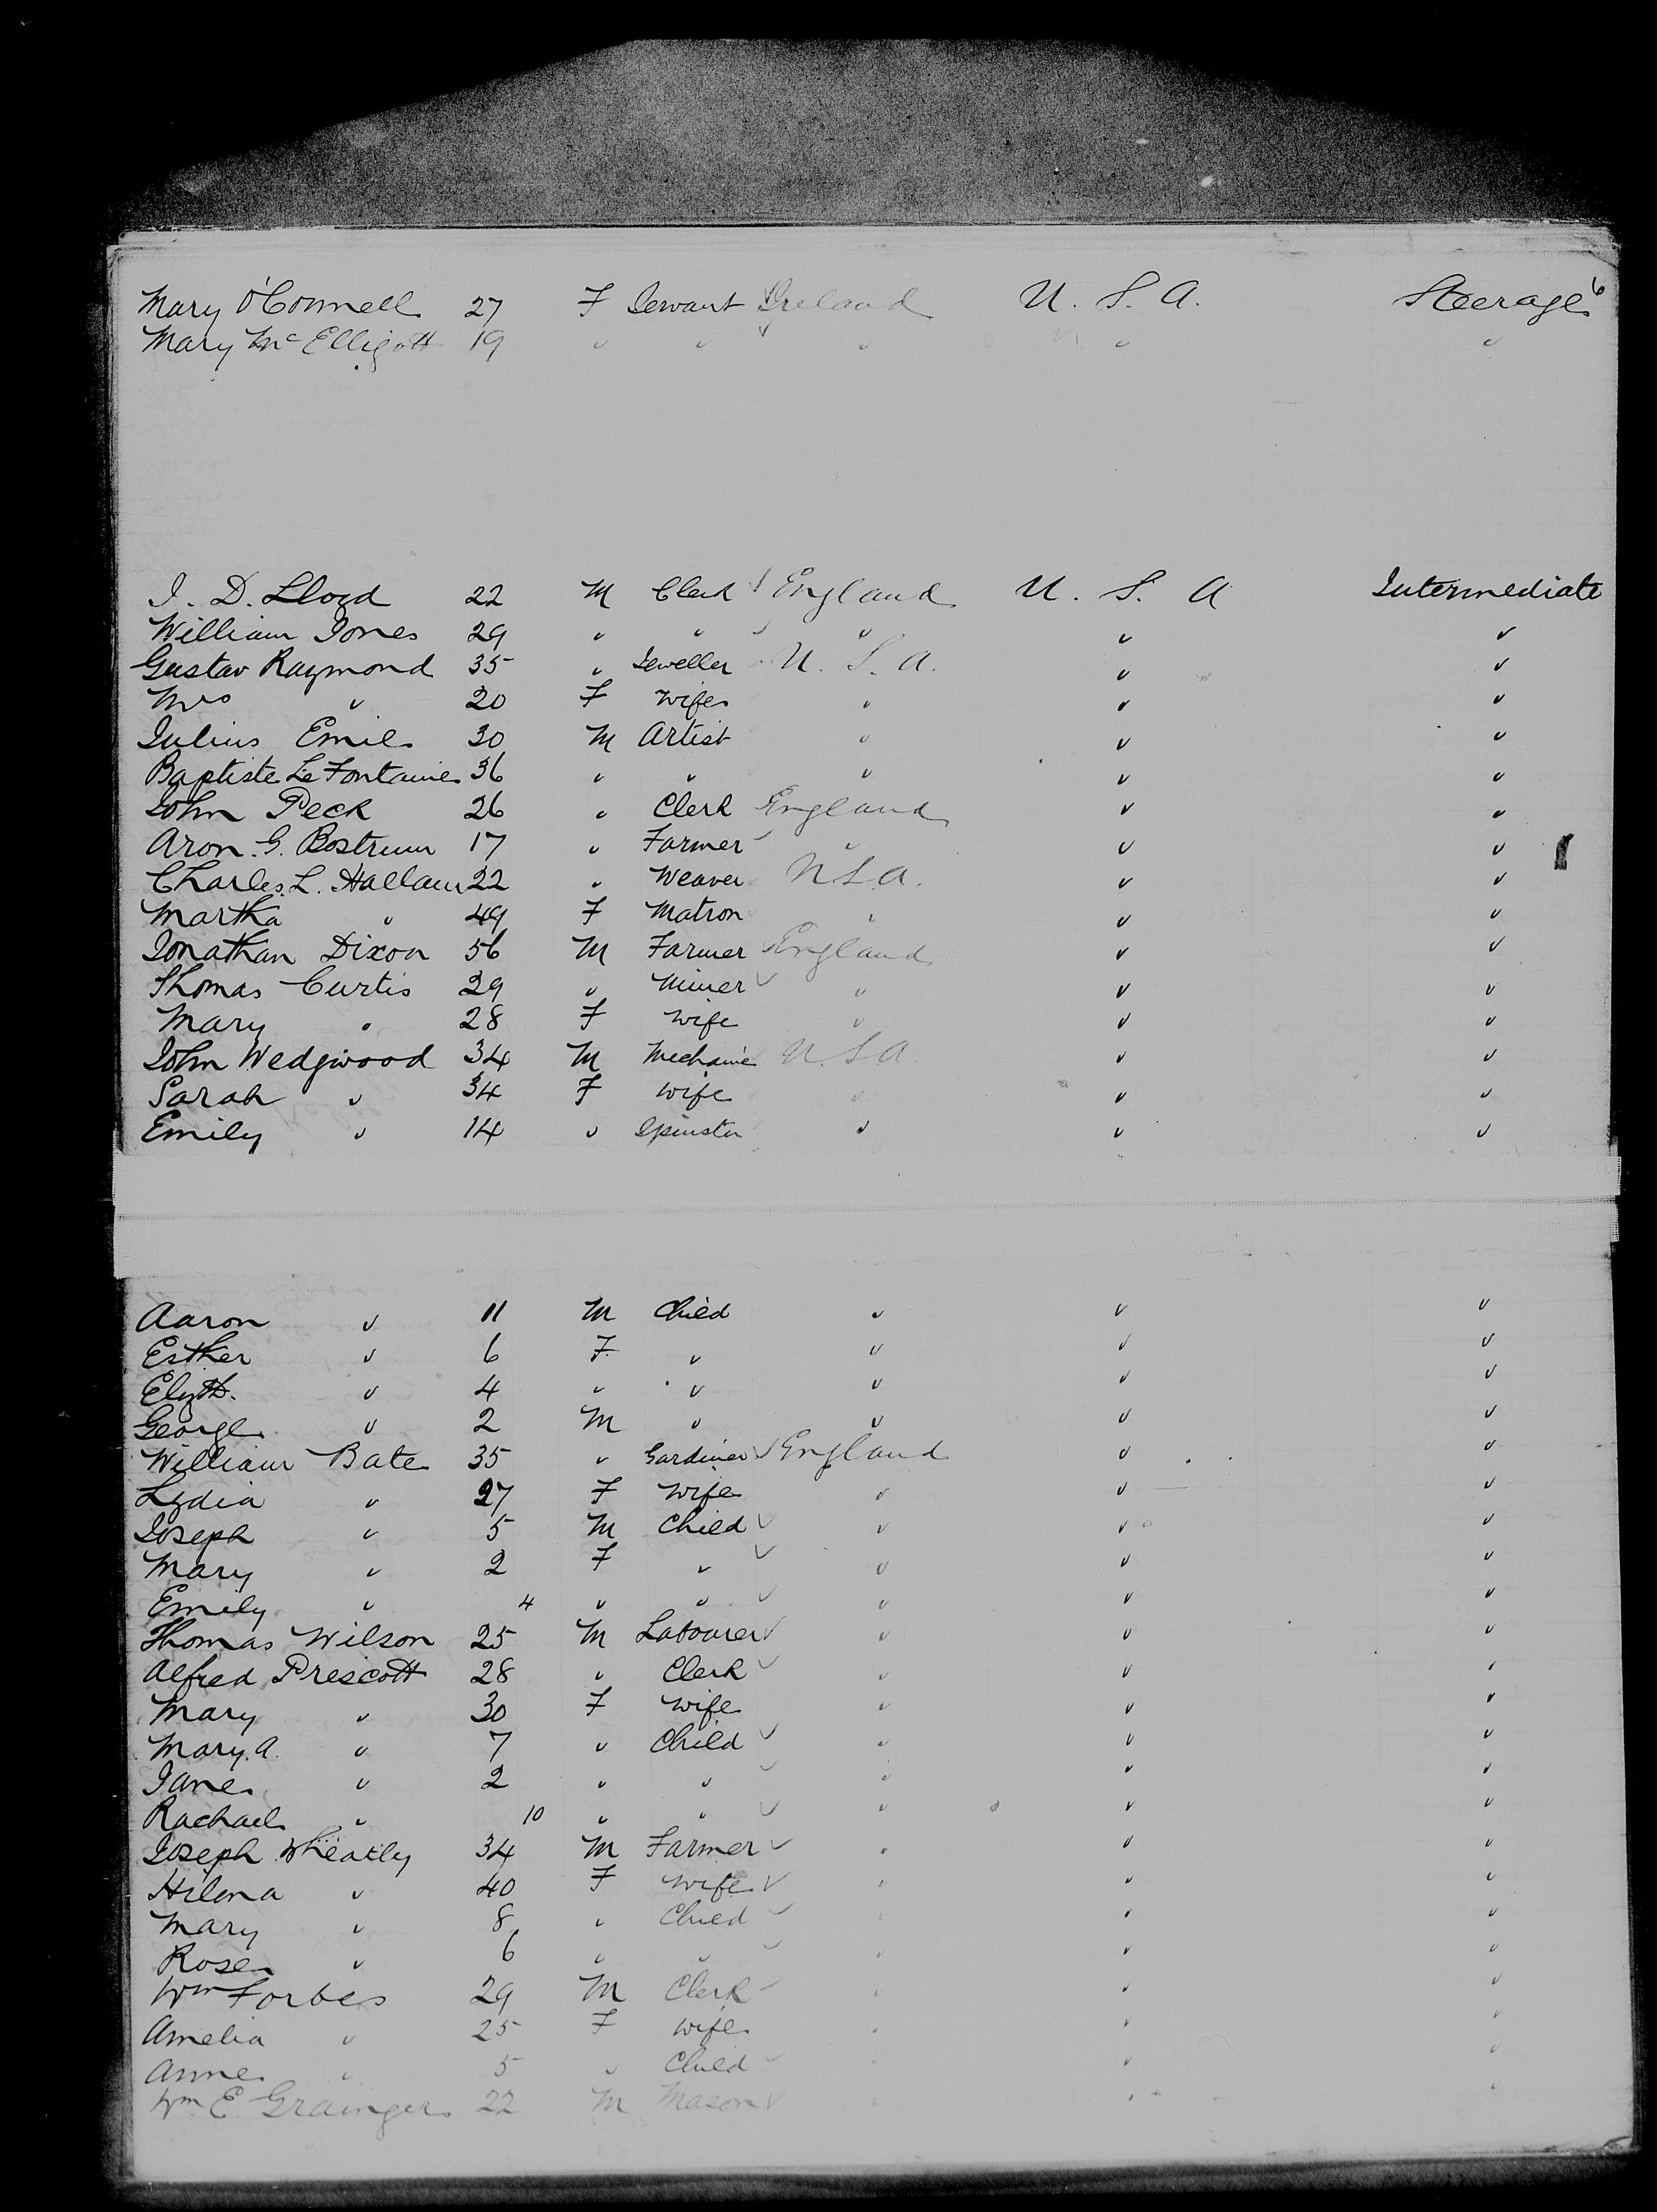 6
Mary O'Connell 27 F Servant Ireland U. S. A. Steerage
Mary McElligott 19 " " " " "
I. D. Lloyd 22 M Clerk England U. S. A Intermediate
William Jones 29 " " " " "
Gustav Raymond 35 " Jeweller U. S. A. " "
Mrs " 20 F Wife " " "
Julius Emil 30 M Artist " " "
Baptiste La Fontaine 36 " " " " "
John Peck 26 " Clerk England " "
Aron. G. Bostrum 17 " Farmer " " "
Charles. L. Hallam 22 " Weaver U.S.A. " "
Martha " 49 F Matron " " "
Jonathan Dixon 56 M Farmer England " "
Thomas Curtis 29 " Miner " " "
Mary " 28 F Wife " " "
John Wedgwood 34 M Mechanic U.S.A. " "
Sarah " 34 F Wife " " "
Emily " 14 " Spinster " " "
Aaron " 11 M Child " " "
Esther " 6 F " " " "
Elizth. " 4 " " " " "
George " 2 M " " " "
William Bate 35 " Gardiner England " "
Lydia " 27 F Wife " " "
Joseph " 5 M Child " " "
Mary " 2 F " " " "
Emily " 4 " " " " "
Thomas Wilson 25 M Labourer " " "
Alfred Prescott 28 " Clerk " " "
Mary " 30 F Wife " " "
Mary. A. " 7 " Child " " "
Jane " 2 " " " " "
Rachael " 10 " " " " "
Joseph Wheatly 34 M Farmer " " "
Hilena " 40 F Wife " " "
Mary " 8 " Child " " "
Rose " 6 " " " " "
Wm Forbes 29 M Clerk " " "
Amelia " 25 F Wife " " "
Anne " 5 " Child " " "
Wm E. Grainger 22 M Mason " " "